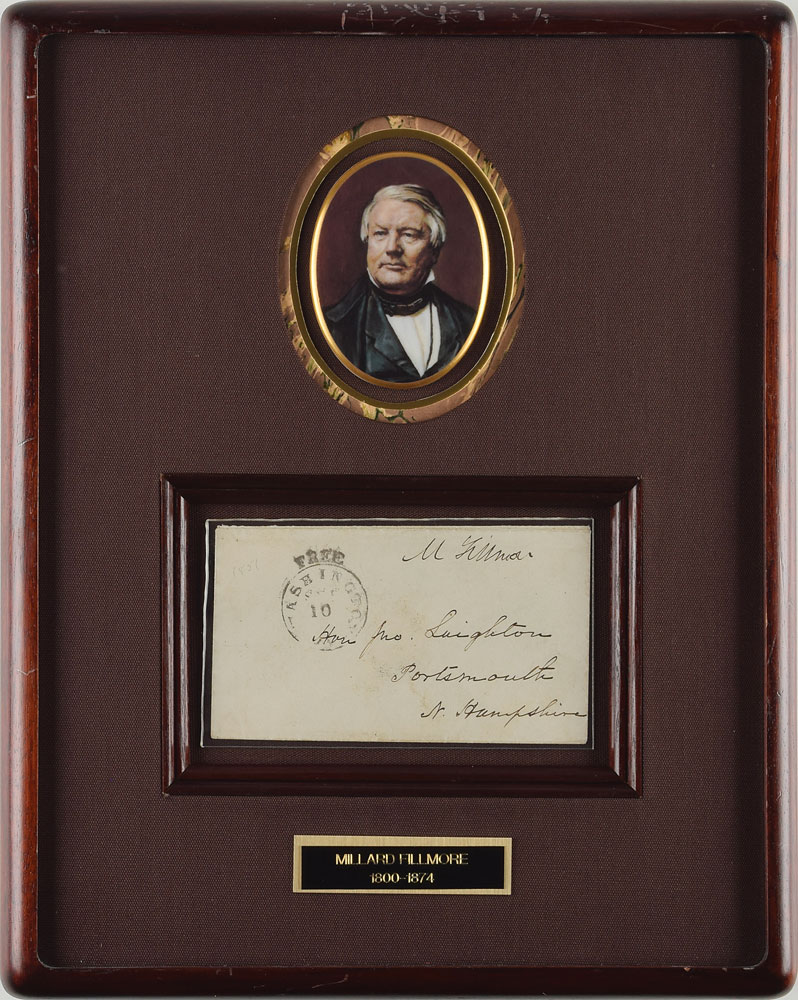 M Fillmo.
FREE
WASHINGTON
10
Hon Jno. Leighton
Portsmouth
N. Hampshire
MILLARD FILLMORE
1800-1874